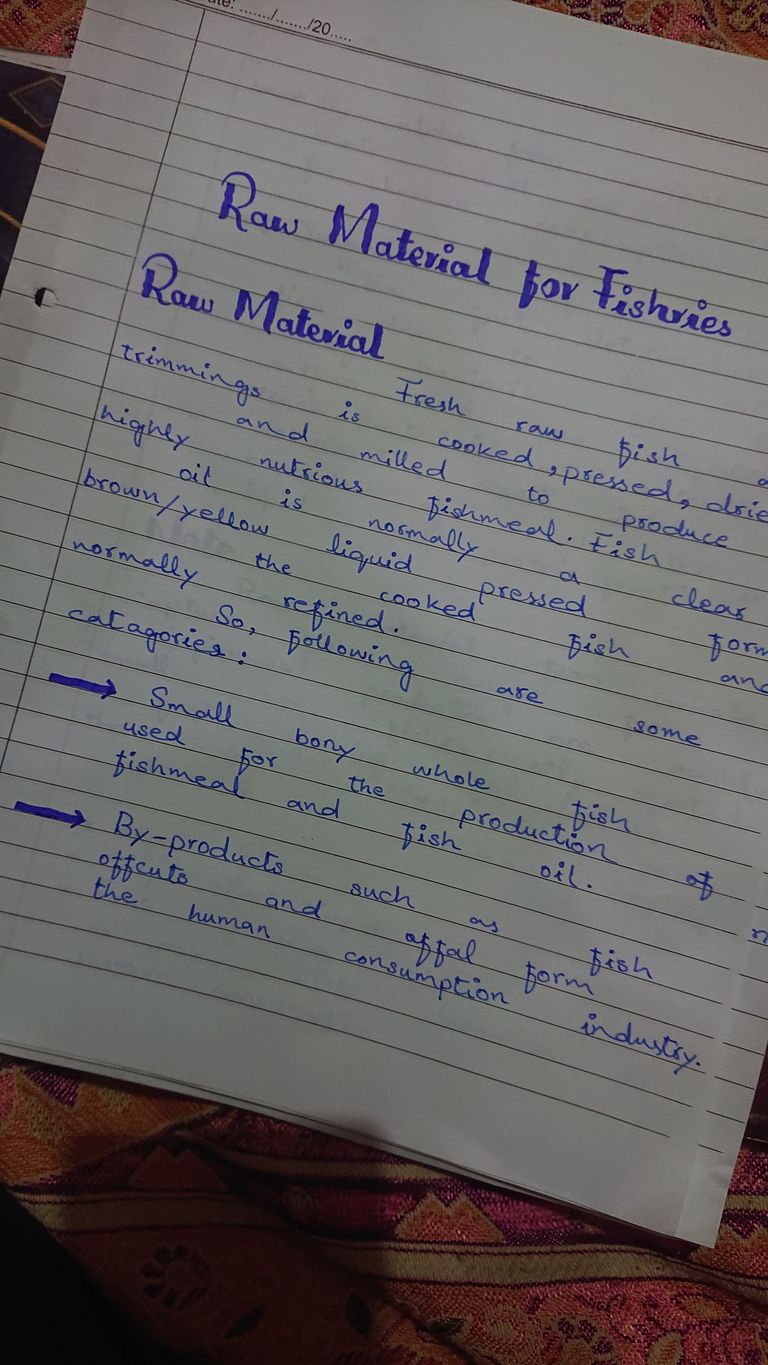 ate: ......../......./20.....
Raw Material for Fishries
Raw Material
Fresh raw fish
trimmings is cooked, pressed, drie
and milled to produce
highly nutrious fishmeal. Fish
oil is normally a clear
brown/yellow liquid pressed form
the cooked fish and
normally refined.
So, following are some
catagories:
Small bony whole fish
used for the production of
fishmeal and fish oil.
By-products such as fish
offcuts and offal form
the human consumption industry.